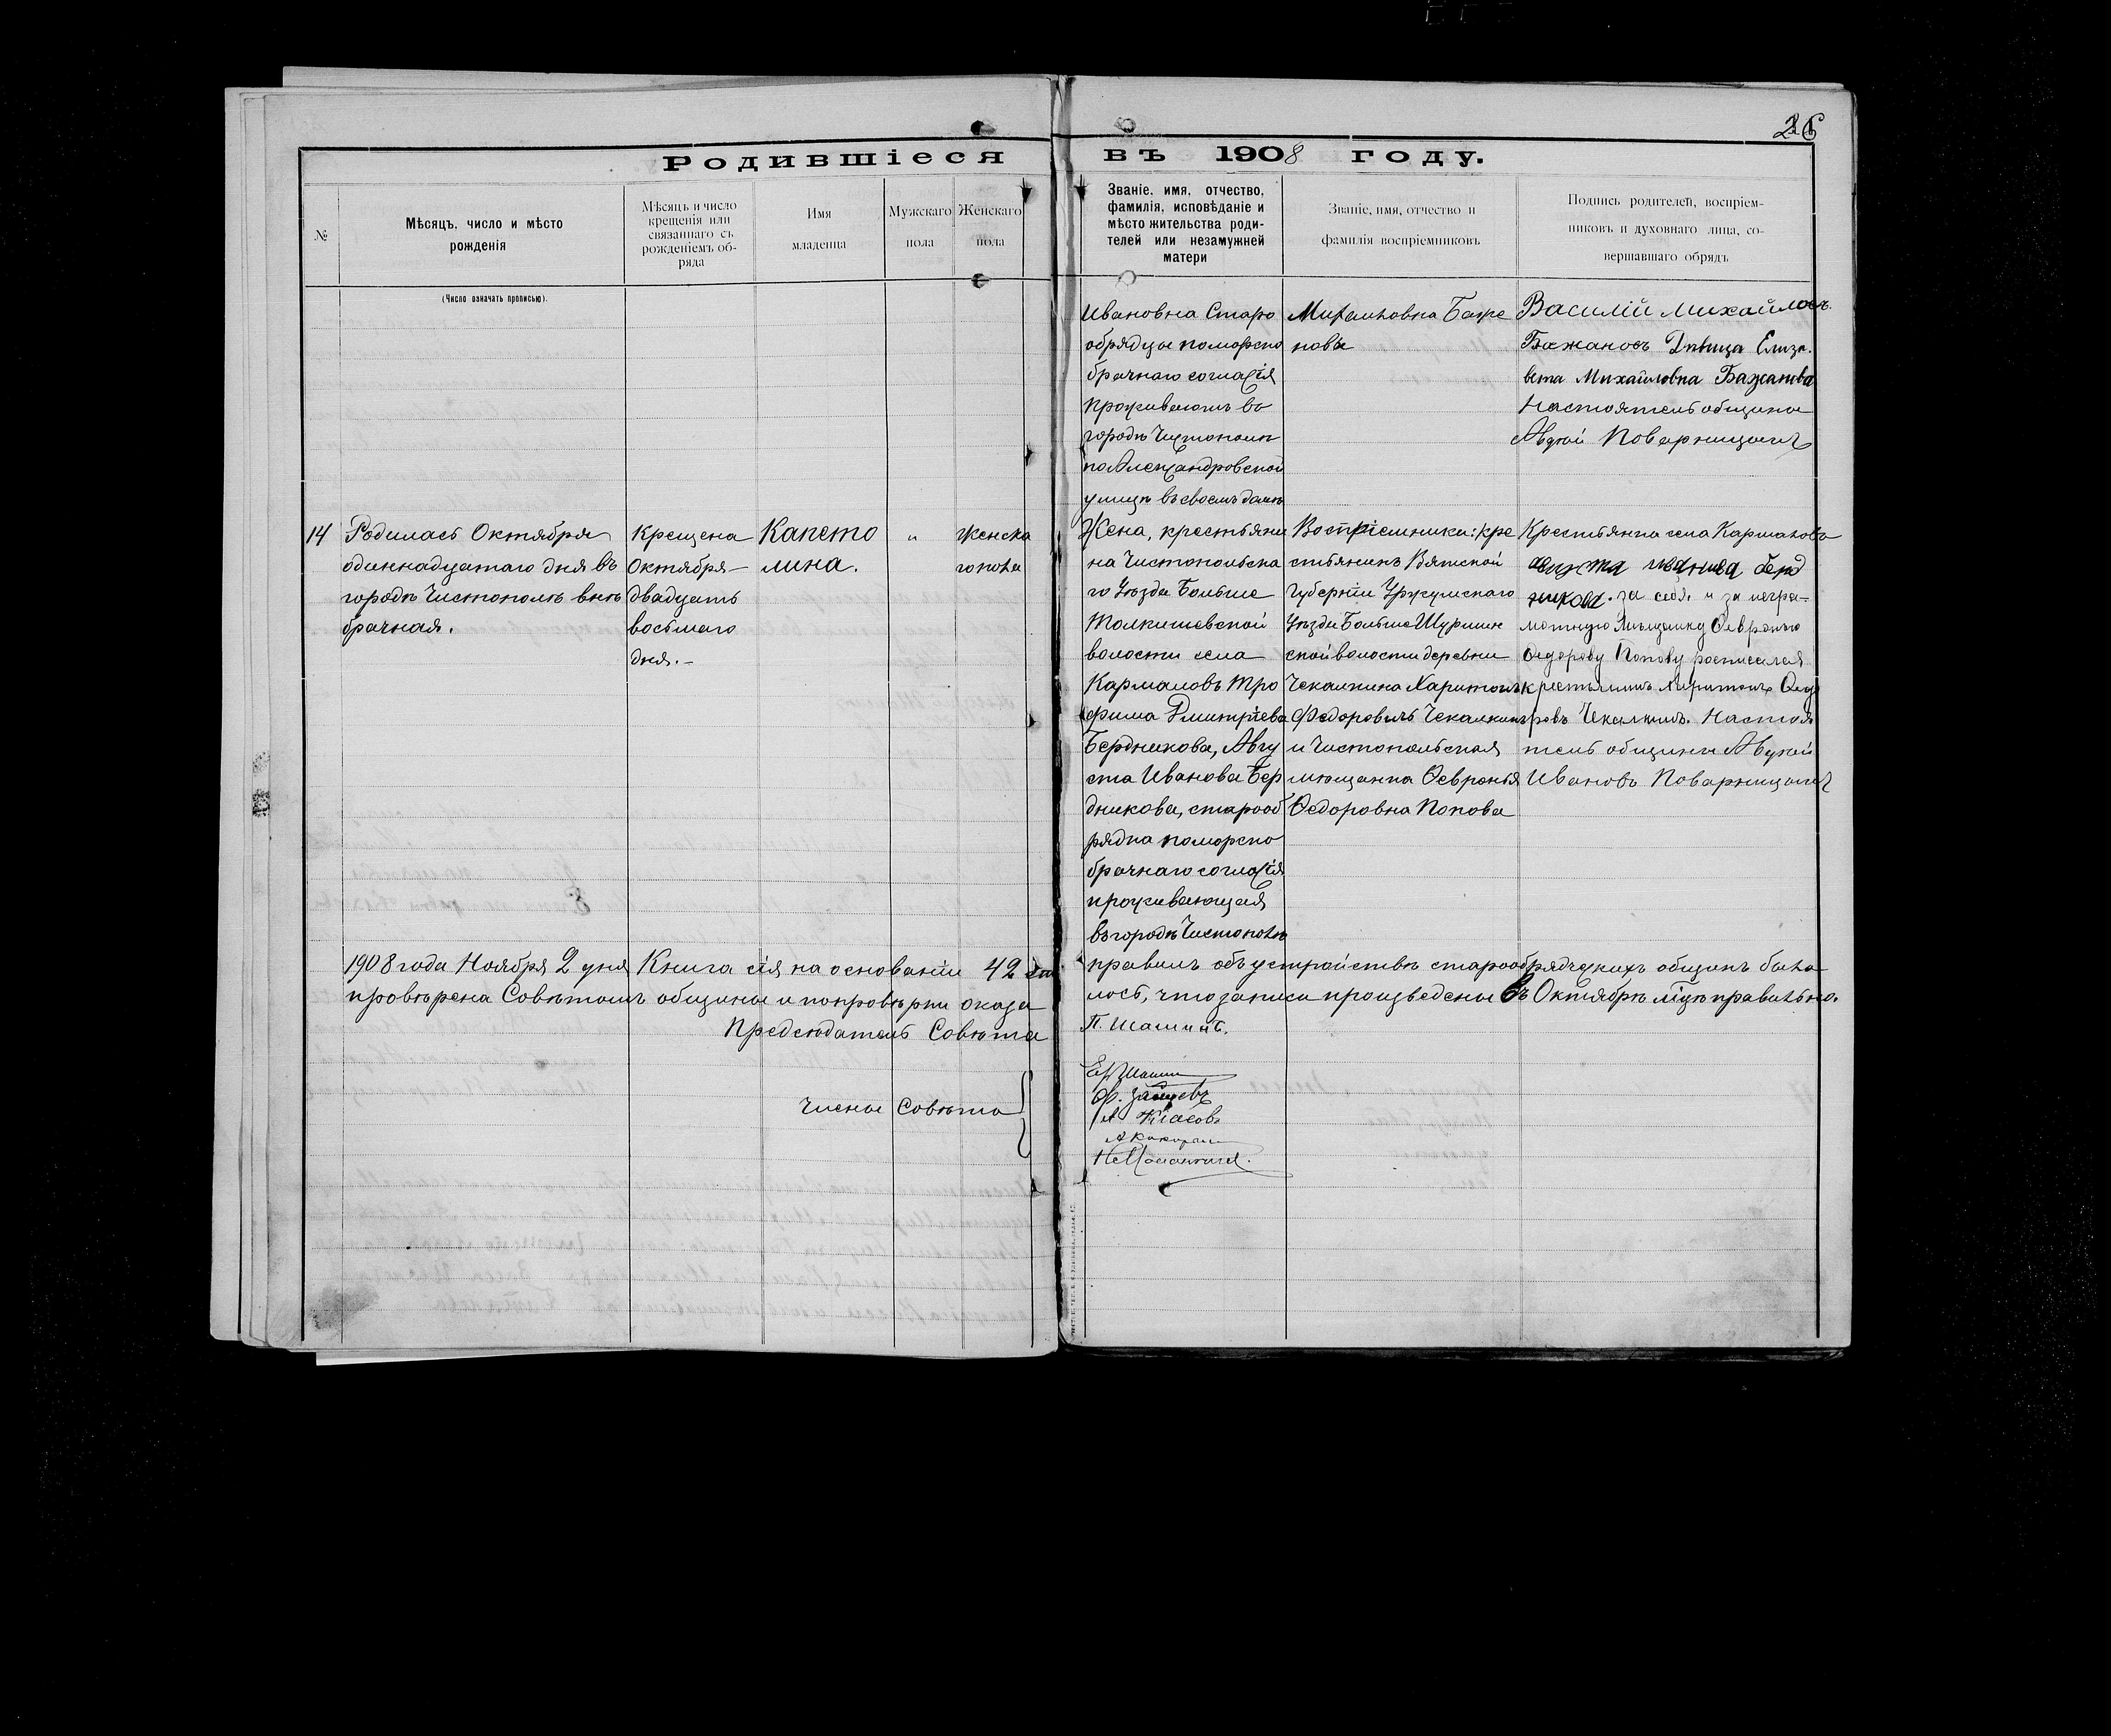 26
Родившіеся въ 1908 году.
№
Мѣсяцъ, число и мѣсто
рожденія
(Число означать прописью).
Мѣсяцъ и число
крещенія или
связаннаго съ
рожденіемъ об-
ряда
Имя
младенца
Мужскаго
пола
Женскаго
пола
Званіе, имя, отчество,
фамилія, исповѣданіе и
мѣсто жительства роди-
телей или незамужней
матери
Званіе, имя, отчество и
фамилія воспріемниковъ
Подпись родителей, воспріем-
никовъ и духовнаго лица, со-
вершавшаго обрядъ
Ивановна Старо
обрядцы поморско
брачнаго согласія
проживаютъ въ
городѣ Чистополѣ
по Александровской
улицѣ въ своемъ домѣ
Михаиловна Бажа
нова
Василій Михайловъ
Бажановъ Дѣвица Елиза.
вета Михайловна Бажанова
Настоятель общины
Авдѣй Поварницынъ
14
Родилась Октября
одиннадцатаго дня въ
городѣ Чистополѣ внѣ
брачная.
Крещена
Октября
двадцать
восьмаго
дня.-
Капето
лина.
"
Женска
го пола
Жена, крестьяни
на Чистопольска
го Уѣзда Больше
Толкишевской
волости села
Кармаловъ Тро
фима Дмитріева
Бердникова, Авгу
ста Иванова Бер
дникова, старооб
рядка поморско
брачнаго согласія
проживающая
въ городѣ Чистополѣ
Воспріемники: кре
стьянинъ Вятской
Губерніи Уржумскаго
Уѣзда Больше Шурмин
ской волости деревни
Чекалкина Харитонъ
Федоровъ Чекалкинъ
и Чистопольская
мѣщанка Ѳевронья
Ѳедоровна Попова
Крестьянка села Кармаловъ
августа иванива берд
никова. за себя. и за негра-
мотную Мѣщанку Ѳевронью
Ѳедорову Попову росписался
крестьянинъ Харитонъ Ѳедо
ровъ Чекалкинъ. Настоя
тель общины Авдѣй
Ивановъ Поварницынъ
1908 года Ноября 2 дня Книга сія на основаніи 42 ст. правилъ объ устройствѣ старообрядческихъ общинъ была
провѣрена Совѣтомъ общины и по провѣрки оказа лось, что записи произведены въ Октябрѣ мцѣ правильно.
Предсѣдатель Совѣта П. Шашинъ.
Члены Совѣта
Ер Шашин
Ф. Зайцевъ
А Власовъ